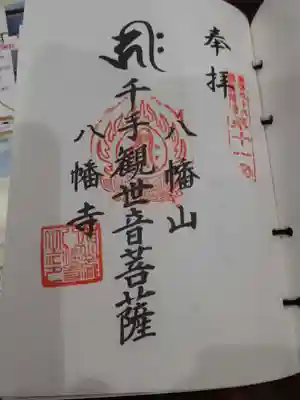 奉拝
八幡山
千手觀世音菩薩
八幡寺